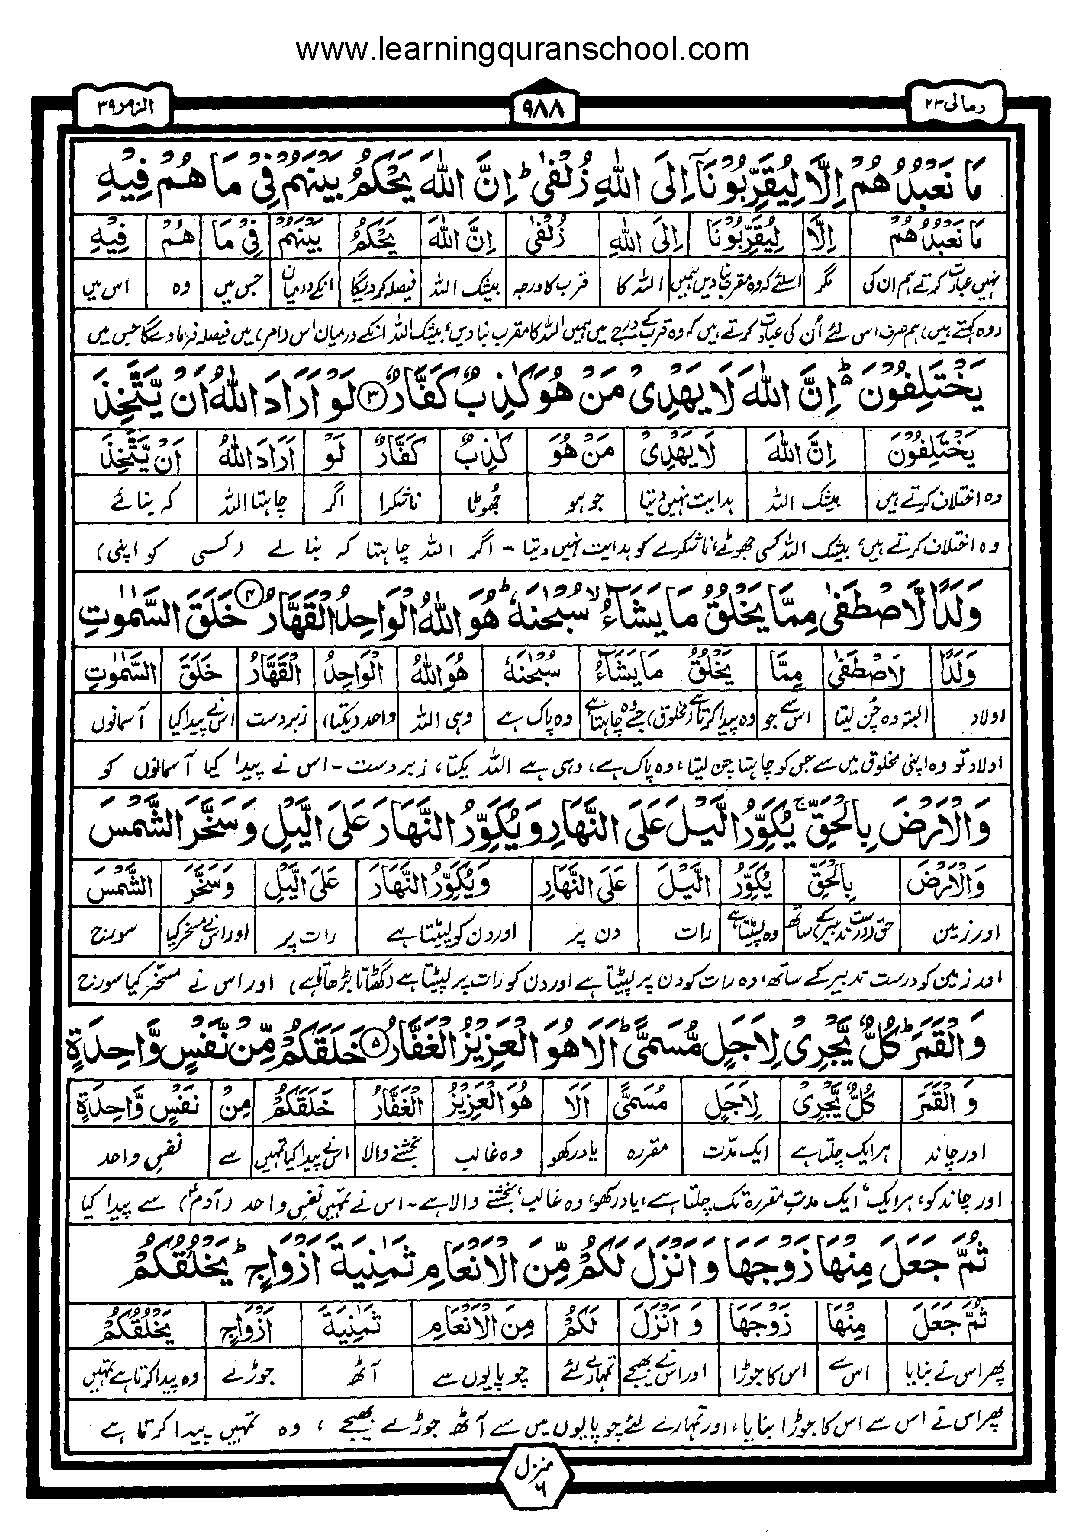 www.learningquranschool.com
ومالی ٢٣
٩٨٨
الزمر ٣٩
مَا نَعْبُدُهُمْ اِلَّا لِيُقَرِّبُوْنَاۤ اِلَى اللهِ زُلْفٰىؕ اِنَّ اللهَ يَحْكُمُ بَيْنَهُمْ فِيْ مَا هُمْ فِيْهِ
مَا نَعْبُدُهُمْ اِلَّا لِيُقَرِّبُوْنَا اِلَى اللهِ زُلْفٰى اِنَّ اللهَ يَحْكُمُ بَيْنَهُمْ فِيْ مَا هُمْ فِيْهِ
نہیں عبادت کرتے ہم ان کی مگر اسلئے کہ وہ مقرب بنا دیں ہمیں اللہ کا قرب کا درجہ بیشک اللہ فیصلہ کر دیگا انکے درمیان جس میں وہ اس میں
(وہ کہتے ہیں) ہم صرف اس لئے اُن کی عبادت کرتے ہیں کہ وہ قرب کے درجے میں ہمیں اللہ کا مقرب بنا دیں، بیشک اللہ انکے درمیان اس (امر) میں فیصلہ فرما دے گا جس میں
يَخْتَلِفُوْنَؕ اِنَّ اللهَ لَا يَهْدِيْ مَنْ هُوَ كٰذِبٌ كَفَّارٌ ٣ لَوْ اَرَادَ اللهُ اَنْ يَّتَّخِذَ
يَخْتَلِفُوْنَ اِنَّ اللهَ لَا يَهْدِيْ مَنْ هُوَ كٰذِبٌ كَفَّارٌ لَوْ اَرَادَ اللهُ اَنْ يَّتَّخِذَ
وہ اختلاف کرتے ہیں بیشک اللہ ہدایت نہیں دیتا جو ہو جھوٹا ناشکرا اگر چاہتا اللہ کہ بنائے
وہ اختلاف کرتے ہیں، بیشک اللہ کسی جھوٹے، ناشکرے کو ہدایت نہیں دیتا - اگر اللہ چاہتا کہ بنائے (کسی کو اپنی)
وَلَدًا لَّاصْطَفٰى مِمَّا يَخْلُقُ مَا يَشَآءُ ۙ سُبْحٰنَهٗؕ هُوَ اللهُ الْوَاحِدُ الْقَهَّارُ ٤ خَلَقَ السَّمٰوٰتِ
وَلَدًا لَاصْطَفٰى مِمَّا يَخْلُقُ مَا يَشَآءُ سُبْحٰنَهٗ هُوَ اللهُ الْوَاحِدُ الْقَهَّارُ خَلَقَ السَّمٰوٰتِ
اولاد البتہ وہ چُن لیتا اس سے جو وہ پیدا کرتا ہے (مخلوق) جسے وہ چاہتا ہے وہ پاک ہے وہی اللہ واحد (یکتا) زبردست اس نے پیدا کیا آسمانوں
اولاد تو وہ اپنی مخلوق میں سے جس کو چاہتا چن لیتا، وہ پاک ہے، وہی ہے اللہ یکتا، زبردست - اس نے پیدا کیا آسمانوں کو
وَالْاَرْضَ بِالْحَقِّۚ يُكَوِّرُ الَّيْلَ عَلَى النَّهَارِ وَيُكَوِّرُ النَّهَارَ عَلَى الَّيْلِ وَسَخَّرَ الشَّمْسَ
وَالْاَرْضَ بِالْحَقِّ يُكَوِّرُ الَّيْلَ عَلَى النَّهَارِ وَيُكَوِّرُ النَّهَارَ عَلَى الَّيْلِ وَسَخَّرَ الشَّمْسَ
اور زمین حق (درست تدبیر) کے ساتھ وہ لپیٹتا ہے رات دن پر اور دن کو لپیٹتا ہے رات پر اور اس نے مسخر کیا سورج
اور زمین کو درست تدبیر کے ساتھ، وہ رات کو دن پر لپیٹتا ہے اور دن کو رات پر لپیٹتا ہے (گھٹاتا بڑھاتا ہے) اور اس نے مسخّر کیا سورج
وَالْقَمَرَؕ كُلٌّ يَّجْرِيْ لِاَجَلٍ مُّسَمًّىؕ اَلَا هُوَ الْعَزِيْزُ الْغَفَّارُ ٥ خَلَقَكُمْ مِّنْ نَّفْسٍ وَّاحِدَةٍ
وَ الْقَمَرَ كُلٌّ يَّجْرِيْ لِاَجَلٍ مُسَمًّى اَلَا هُوَ الْعَزِيْزُ الْغَفَّارُ خَلَقَكُمْ مِنْ نَفْسٍ وَّاحِدَةٍ
اور چاند ہر ایک چلتا ہے ایک مدّت مقررہ یاد رکھو وہ غالب بخشنے والا اس نے پیدا کیا تمہیں سے نفسِ واحد
اور چاند کو، ہر ایک، ایک مدتِ مقررہ تک چلتا ہے، یاد رکھو، وہ غالب، بخشنے والا ہے - اس نے تمہیں نفسِ واحد (آدمؑ) سے پیدا کیا
ثُمَّ جَعَلَ مِنْهَا زَوْجَهَا وَ اَنْزَلَ لَكُمْ مِّنَ الْاَنْعَامِ ثَمٰنِيَةَ اَزْوَاجٍؕ يَخْلُقُكُمْ
ثُمَّ جَعَلَ مِنْهَا زَوْجَهَا وَ اَنْزَلَ لَكُمْ مِنَ الْاَنْعَامِ ثَمٰنِيَةَ اَزْوَاجٍ يَخْلُقُكُمْ
پھر اس نے بنایا اس سے اس کا جوڑا اور اس نے بھیجے تمہارے لئے چوپایوں سے آٹھ جوڑے وہ پیدا کرتا ہے تمہیں
پھر اس نے اس سے اس کا جوڑا بنایا، اور تمہارے لئے چوپایوں میں سے آٹھ جوڑے بھیجے، وہ تمہیں پیدا کرتا ہے
منزل
٦